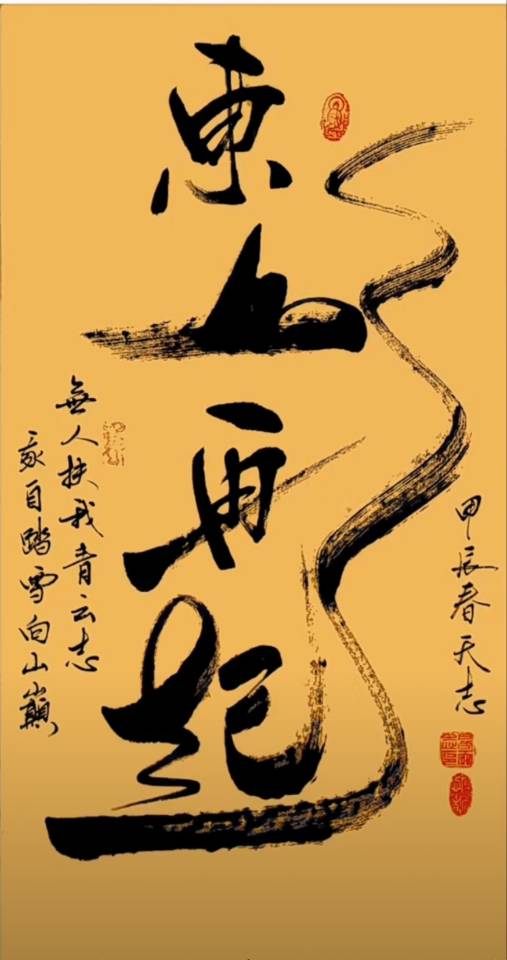 東山再起
無人扶我青云志
我自踏雪向山巔
甲辰春天志